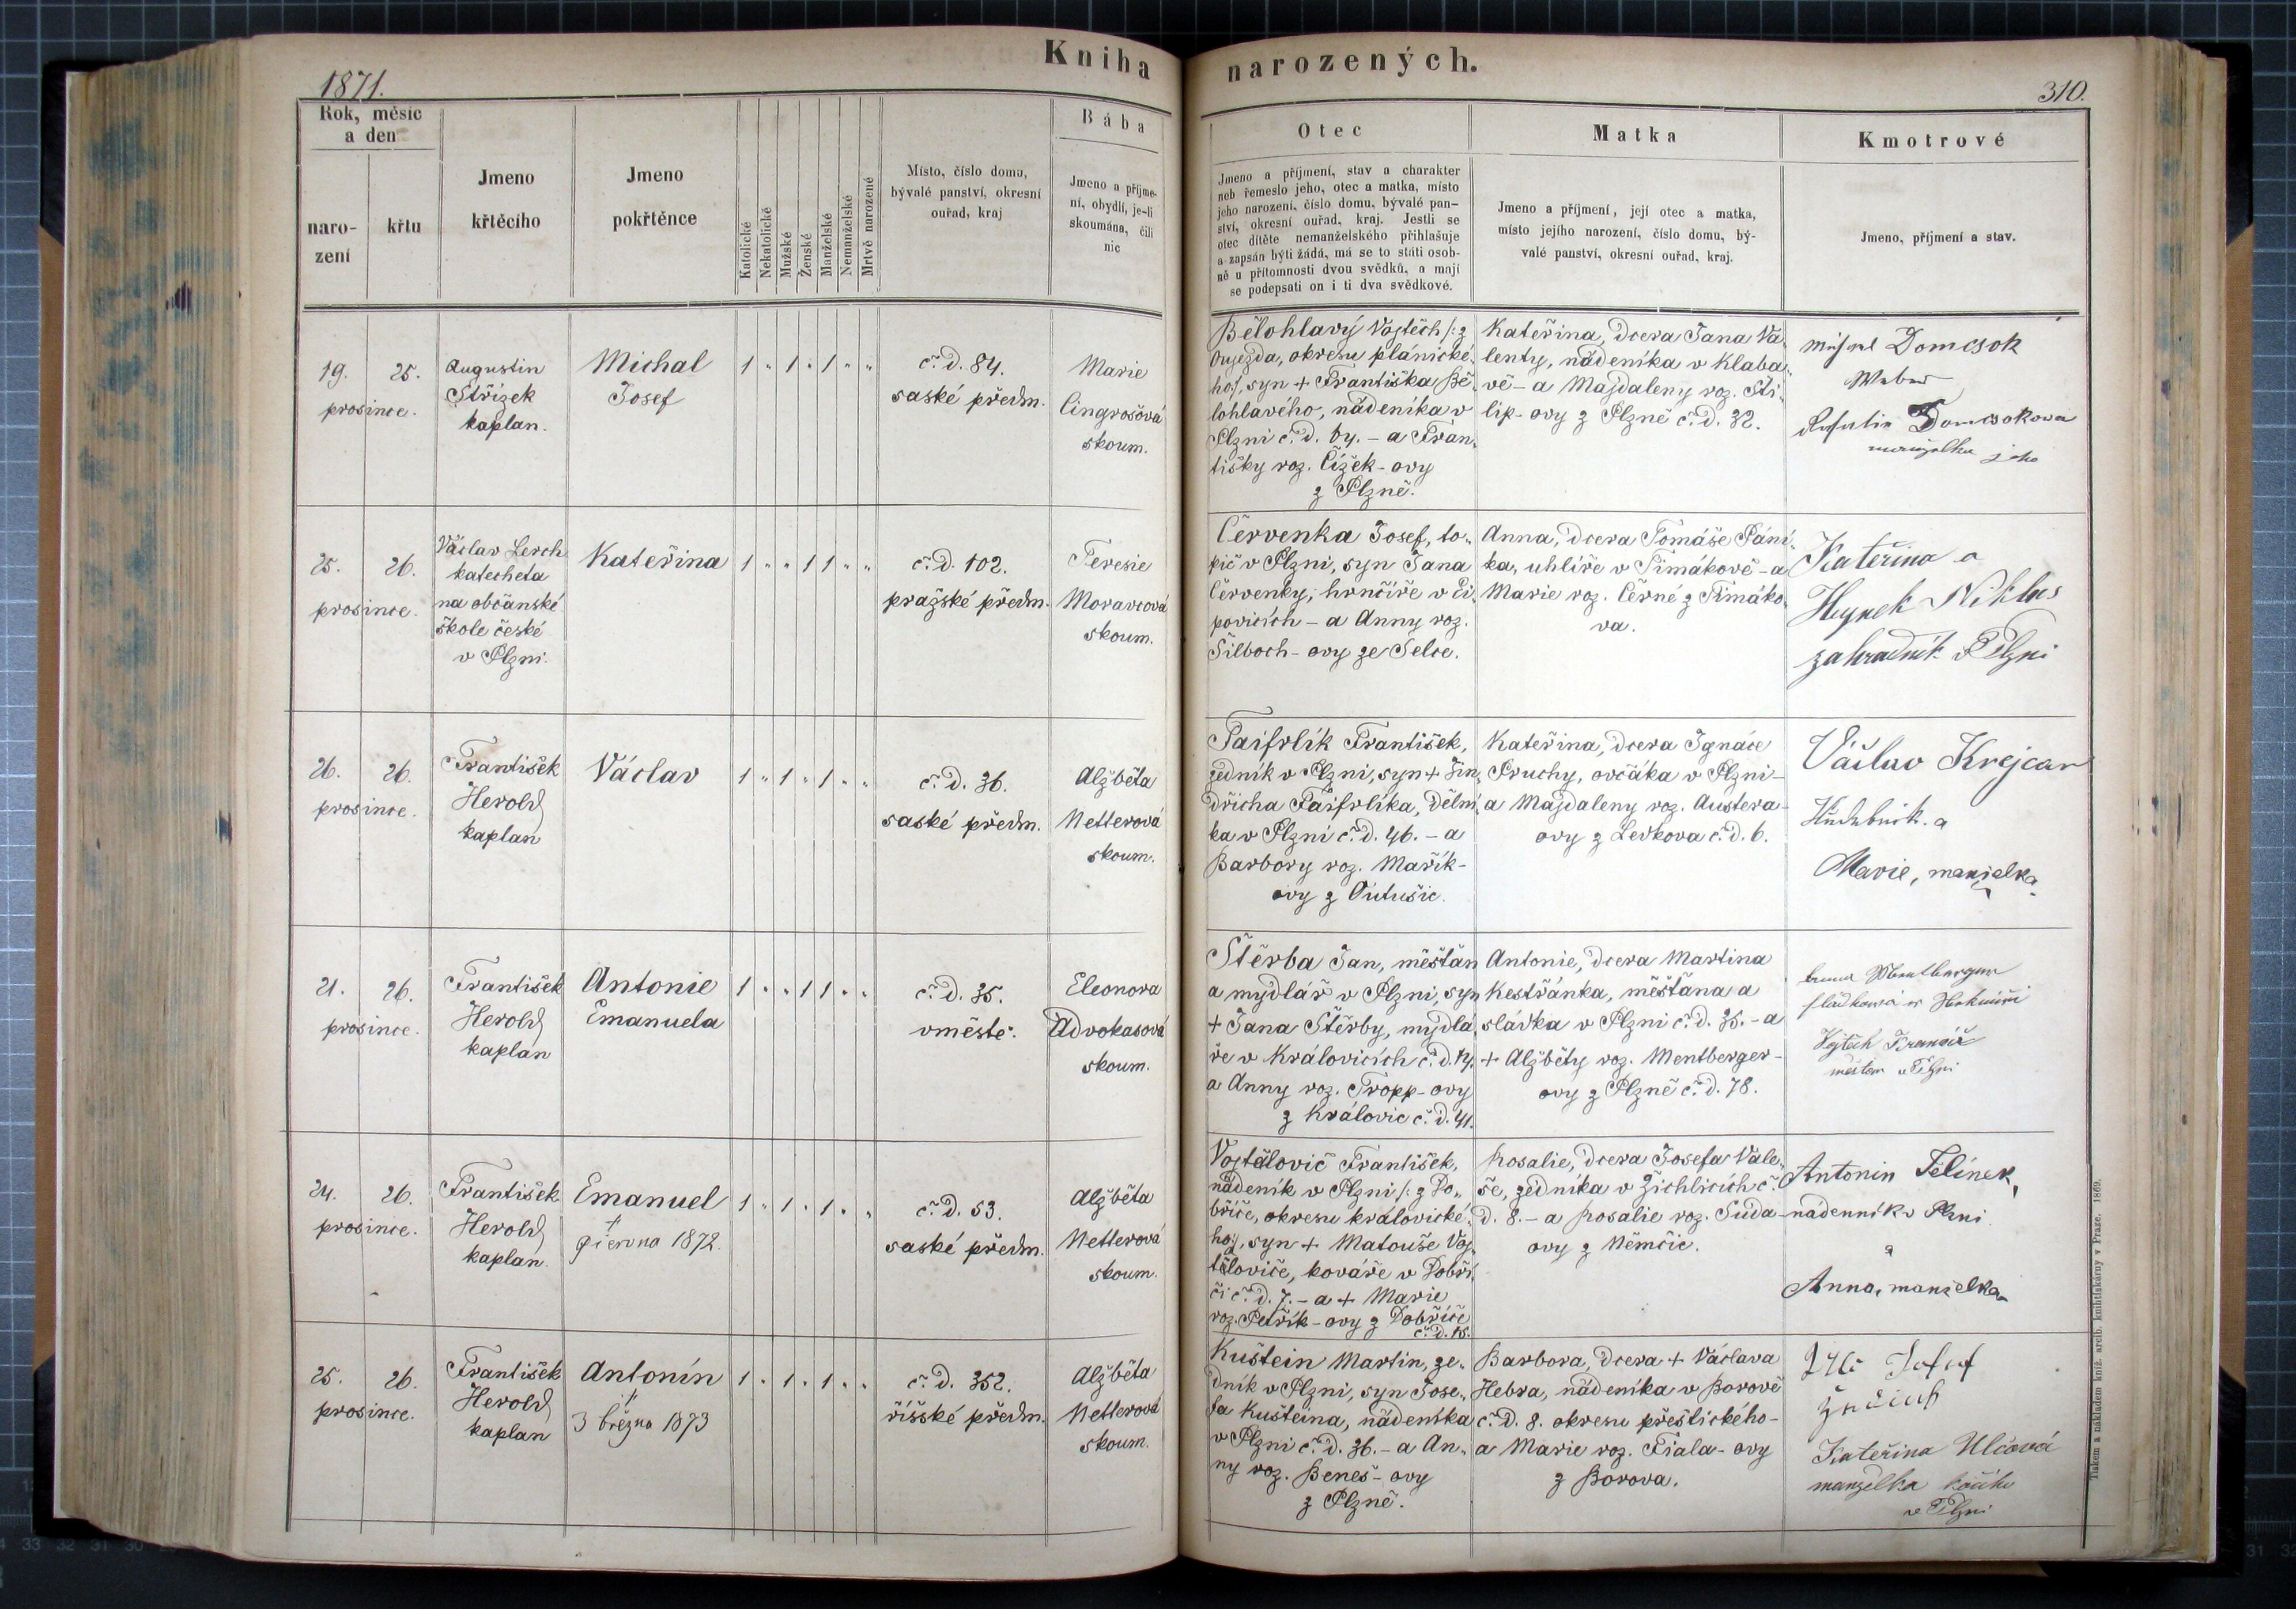 Kniha narozených.
1871.
310.
Rok, měsíc a den
narození
křtu
Jmeno křtěcího
Jmeno pokřtěnce
Katolické
Nekatolické
Mužské
Ženské
Manželské
Nemanželské
Mrtvě narozené
Místo, číslo domu,
bývalé panství, okresní
ouřad, kraj
Bába
Jmeno a příjme-
ní, obydlí, je-li
skoumána, čili
nic
Otec
Jmeno a příjmení, stav a charakter
neb řemeslo jeho, otec a matka, místo
jeho narození, číslo domu, bývalé pan-
ství, okresní ouřad, kraj. Jestli se
otec dítěte nemanželského přihlašuje
a zapsán býti žádá, má se to státi osob-
ně u přítomnosti dvou svědků, a mají
se podepsati on i ti dva svědkové.
Matka
Jmeno a příjmení, její otec a matka,
místo jejího narození, číslo domu, bý-
valé panství, okresní ouřad, kraj.
Kmotrové
Jmeno, příjmení a stav.
19. 25.
prosince.
Augustin
Střízek
kaplan.
Michal
Josef
1 " 1 " 1 " "
č. d. 84.
saské předm.
Marie
Cingrošová
skoum.
Bělohlavý Vojtěch /: z
Oujezda, okresu plánické-
ho/, syn + Františka Bě-
lohlavého, nádeníka v
Plzni č. d. 67. – a Fran-
tišky roz. Čížek-ovy
z Plzně.
Kateřina, dcera Jana Va-
lenty, nádeníka v Klaba-
vě – a Majdaleny roz. Sti-
lip-ovy z Plzně č. d. 32.
Domcsok
Weber
Domcsokova
manželka jeho
25. 26.
prosince.
Václav Lerch
katecheta
na občanské
škole české
v Plzni.
Kateřina
1 " " 1 1 " "
č. d. 102.
pražské předm.
Teresie
Moravcová
skoum.
Červenka Josef, to-
pič v Plzni, syn Jana
Červenky, hrnčíře v Či-
povicích – a Anny roz.
Šilboch-ovy ze Selce.
Anna, dcera Tomáše Páni-
ka, uhlíře v Timákově – a
Marie roz. Černé z Timáko-
va.
Kateřina a
Hynek Niklas
zahradník v Plzni
26. 26.
prosince.
František
Herold
kaplan
Václav
1 " 1 " 1 " "
č. d. 36.
saské předm.
Alžběta
Netterová
skoum.
Taifrlík František,
zedník v Plzni, syn + Jin-
dřicha Taifrlíka, dělní-
ka v Plzni č. d. 46. – a
Barbory roz. Mařík-
ovy z Outušic.
Kateřina, dcera Ignáce
Pruchy, ovčáka v Plzni –
a Majdaleny roz. Austera-
ovy z Ledkova č. d. 6.
Václav Krejcar
Hudebník. a
Marie, manželka
21. 26.
prosince.
František
Herold
kaplan
Antonie
Emanuela
1 " " 1 1 " "
č. d. 35.
v městě.
Eleonora
Advokasová
skoum.
Štěrba Jan, měšťan
a mydlář v Plzni, syn
+ Jana Štěrby, mydlá-
ře v Královicích č. d. 14.
a Anny roz. Tropp-ovy
z Královic č. d. 41.
Antonie, dcera Martina
Kestřánka, měšťana a
sládka v Plzni č. d. 35. – a
+ Alžběty roz. Mentberger-
ovy z Plzně č. d. 78.
Anna Mentberger
sládková v
Vojtěch
měšťan v Plzni
24. 26.
prosince.
František
Herold
kaplan.
Emanuel
†
9 června 1872.
1 " 1 " 1 " "
č. d. 53.
saské předm.
Alžběta
Netterová
skoum.
Vojtělovič František,
nádeník v Plzni /: z Do-
bříče, okresu královické-
ho/, syn + Matouše Voj-
těloviče, kováře v Dobří-
či č. d. 7. – a + Marie
roz. Petřík-ovy z Dobříče
č. d. 15.
Rosalie, dcera Josefa Vale-
še, zedníka v Žichlicích č.
d. 8. – a Rosalie roz. Suda-
ovy z Němčic.
Antonin Jelínek,
nadenník v Plzni
a
Anna, manzelka
25. 26.
prosince.
František
Herold
kaplan
Antonín
†
3 března 1873
1 " 1 " 1 " "
č. d. 352.
říšské předm.
Alžběta
Netterová
skoum.
Kuštein Martin, ze-
dník v Plzni, syn Jose-
fa Kušteina, nádeníka
v Plzni č. d. 36. – a An-
ny roz. Beneš-ovy
z Plzně.
Barbora, dcera + Václava
Hebra, nádeníka v Borově
č. d. 8. okresu přeštického –
a Marie roz. Fiala-ovy
z Borova.
Josef
Kateřina Ulčová
manzelka
v Plzni
Tiskem a nákladem kníž. arcib. knihtiskárny v Praze. 1869.